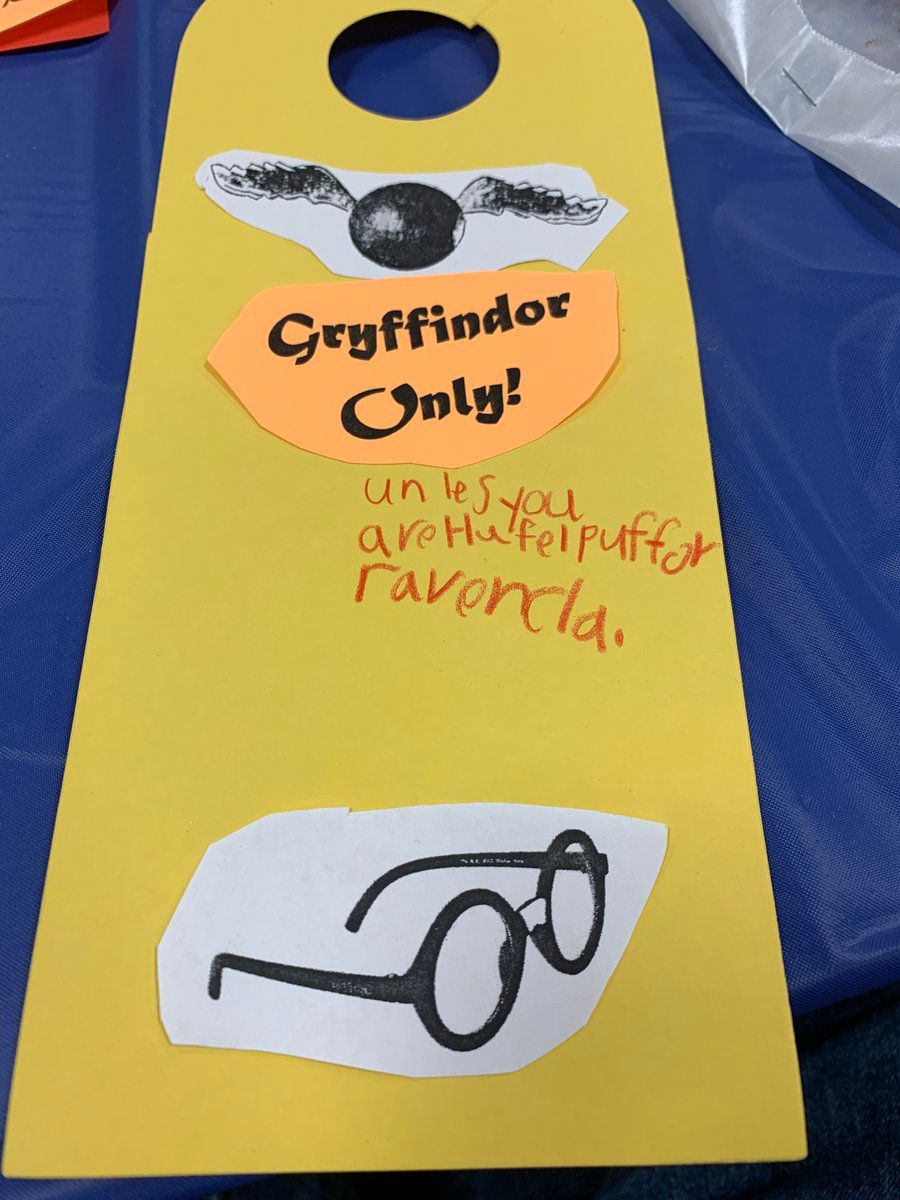 Gryffindor
Only!
un les you
are Hufelpuff or
ravoncla.